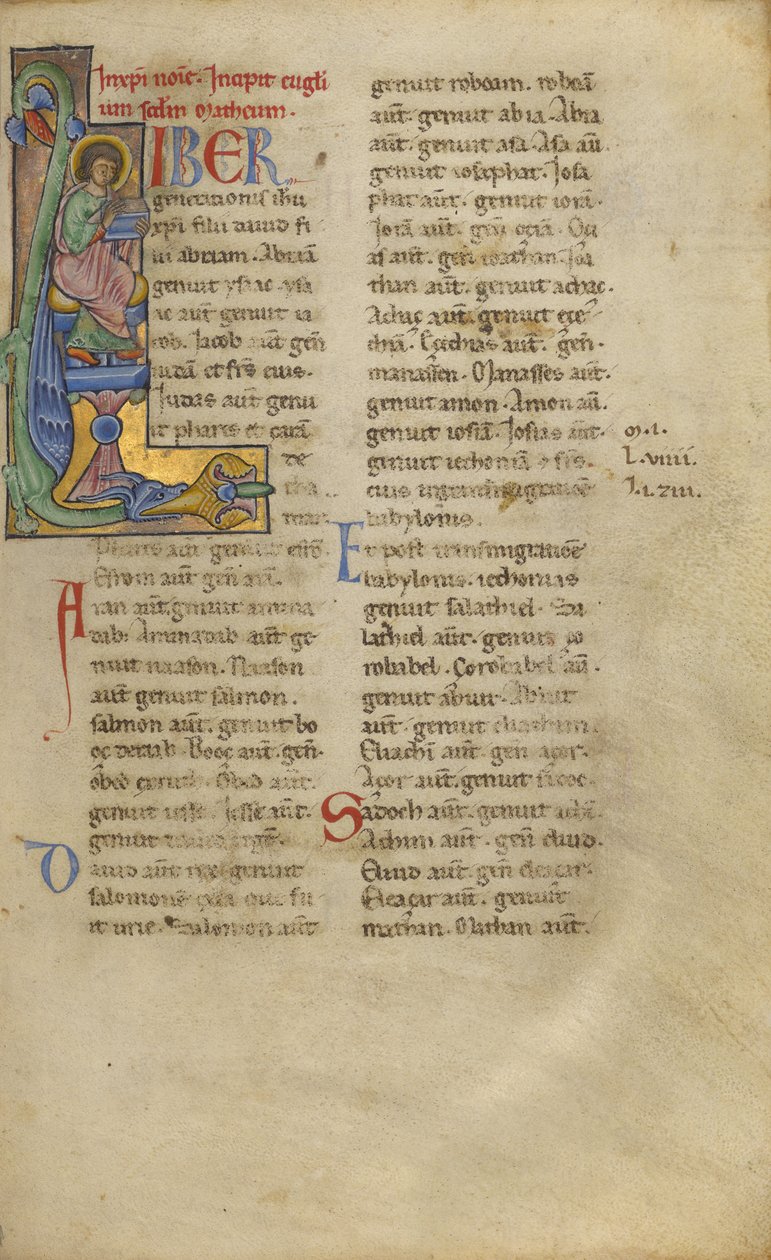 In xp̄i noīe. Incipit eug̃li
um sc̄dm Matheum.
LIBER
generationis ihu
xp̄i filii dauid fi
lii abraam. Abraā
genuit ysaac. ysa
ac aut̄ genuit ia
cob. Jacob aut̄ geñ
iudā et fr̄s eius.
Judas aut̄ genu
it phares et çarā
de
tha
mar
Phares aut̄ genuit esrō.
Esrom aut̄ geñ arā.
Aran aut̄ genuit amina
dab. Aminadab aut̄ ge
nuit naason. Naason
aut̄ genuit salmon.
salmon aut̄. genuit bo
oç de raab. Booç aut̄. geñ.
obed ex ruth. Obed aut̄.
genuit iesse. Jesse aut̄.
genuit regē.
Dauid aut̄ rex genuit
salomonē ex ea que fu
it urie. Salomon aut̄
genuit roboam. roboā
aut̄. genuit abia. Abia
aut̄. genuit asa. Asa aū.
genuit iosaphat. Josa
phat aut̄. genuit iorā.
Jorā aut̄. geñ oçiā. Oçi
as aut̄. geñ ioathan. Joa
than aut̄. genuit achaç.
Achaç aut̄. genuit eçe
chiā. Eçechias aut̄. geñ.
manassen. Manasses aut̄.
genuit amon. Amon aū.
genuit iosiā. Josias aut̄.
genuit iechoniā et fr̄s.
eius in transmigratiōe
babylonis.
Et post transmigratiōe
babylonis. iechonias
genuit salathiel. Sa
lathiel aut̄. genuit ço
robabel. Çorobabel aū.
genuit abiut. Abiut
aut̄. genuit eliachim.
Eliachī aut̄. geñ açor.
Açor aut̄. genuit sadoc.
Sadoch aut̄. genuit achī.
Achim aut̄. geñ eliud.
Eliud aut̄. geñ eleaçar.
Eleaçar aut̄. genuit
mathan. Mathan aut̄.
M. I.
L. VIIII.
J. I. ZIII.